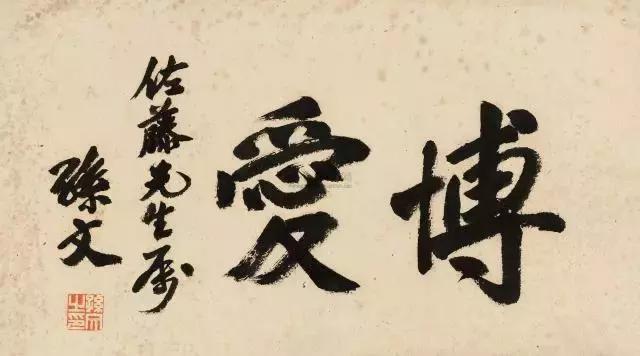 博愛
佐藤先生屬
孫文
孫文之印